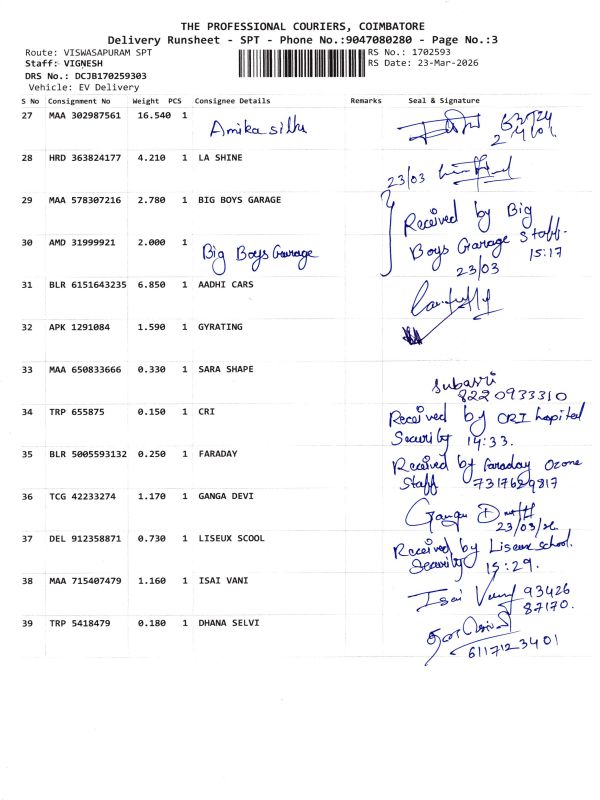 THE PROFESSIONAL COURIERS, COIMBATORE
Delivery Runsheet - SPT - Phone No.:9047080280 - Page No.:3
Route: VISWASAPURAM SPT RS No.: 1702593
Staff: VIGNESH RS Date: 23-Mar-2026
DRS No.: DCJB170259303
Vehicle: EV Delivery
S No Consignment No Weight PCS Consignee Details Remarks Seal & Signature
27 MAA 302987561 16.540 1 Amika silks
28 HRD 363824177 4.210 1 LA SHINE 23/03
29 MAA 578307216 2.780 1 BIG BOYS GARAGE Received by Big
30 AMD 31999921 2.000 1 Big Boys Garage Boys Garage Staff. 15:17
23/03
31 BLR 6151643235 6.850 1 AADHI CARS
32 APK 1291084 1.590 1 GYRATING
33 MAA 650833666 0.330 1 SARA SHAPE Subasri
8220933310
34 TRP 655875 0.150 1 CRI Received by CRI hospital
Security 14:33.
35 BLR 5005593132 0.250 1 FARADAY Received by faraday Ozone
Staff 7317629817
36 TCG 42233274 1.170 1 GANGA DEVI Ganga
23/03/26
37 DEL 912358871 0.730 1 LISEUX SCOOL Received by Liseux school.
Security 15:29.
38 MAA 715407479 1.160 1 ISAI VANI Isai Vani 93426
87170.
39 TRP 5418479 0.180 1 DHANA SELVI
6117123401